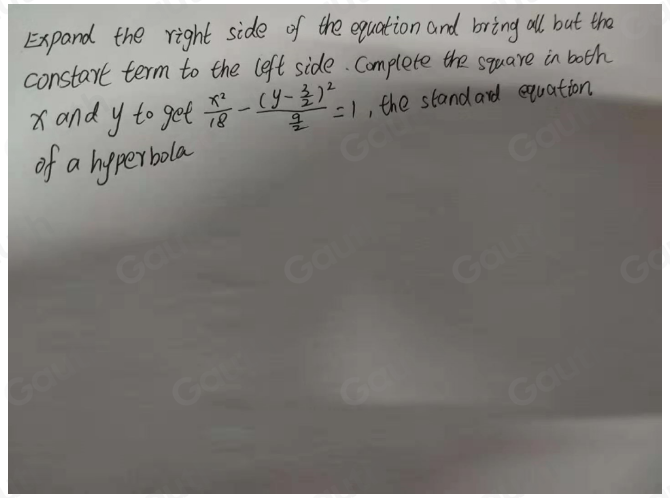 Expand the right side of the equation and bring all but the
constant term to the left side. Complete the square in both
x and y to get \frac{x^2}{18} - \frac{(y-\frac{3}{2})^2}{\frac{9}{2}} = 1, the standard equation
of a hyperbola